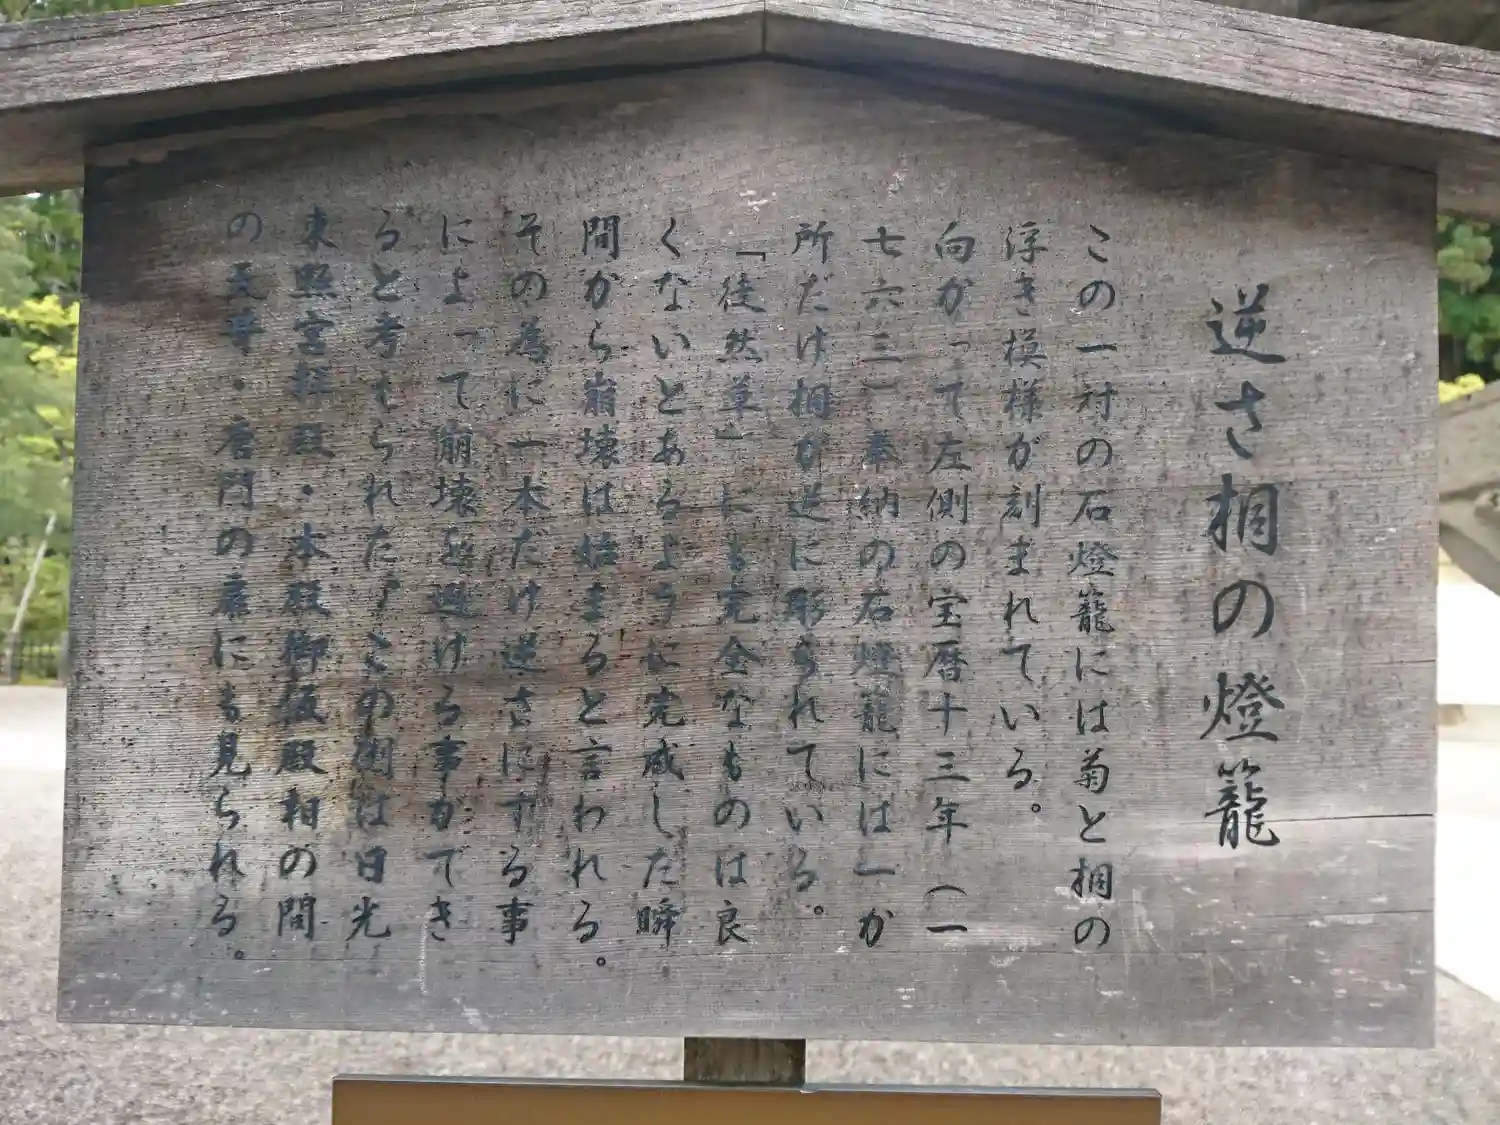 逆さ桐の燈籠
この一対の石燈籠には菊と桐の
浮き模様が刻まれている。
向かって左側の宝暦十三年(一
七六三)奉納の石燈籠には一か
所だけ桐が逆に彫られている。
「徒然草」にも完全なものは良
くないとあるように完成した瞬
間から崩壊は始まると言われる。
その為に一本だけ逆さにする事
によって崩壊を避ける事ができ
ると考えられた。この例は日光
東照宮拝殿・本殿御仮殿相の間
の天井・唐門の扉にも見られる。